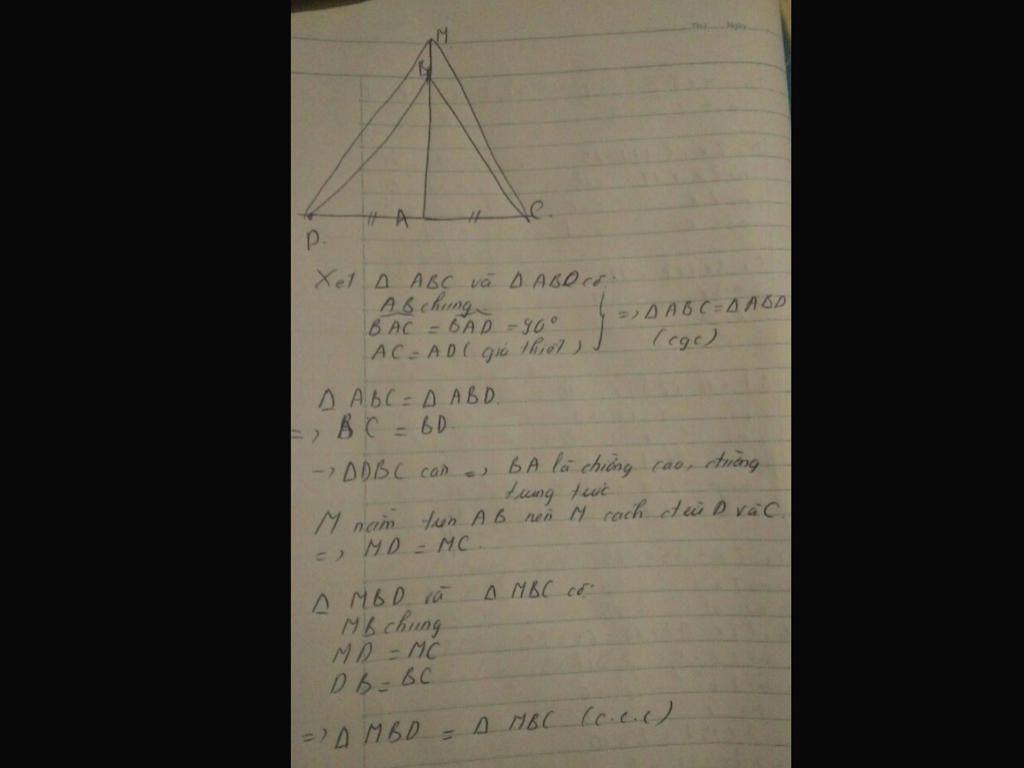 Thứ Ngày
M
B
D.
A
C.
Xét Δ ABC và Δ ABD có:
AB chung
BAC = BAD = 90°
AC = AD ( giả thiết )
=> Δ ABC = Δ ABD
(cgc)
Δ ABC = Δ ABD.
=> BC = BD.
-> ΔDBC cân => BA là đường cao, đường
trung trực
M nằm trên AB nên M cách đều D và C.
=> MD = MC.
Δ MBD và Δ MBC có:
MB chung
MD = MC
DB = BC
=> Δ MBD = Δ MBC (c.c.c)